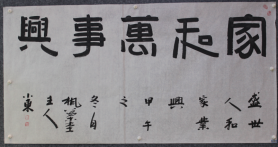 家和萬事興
盛世
人和
家業
興
甲午
之
冬月
楓葉堂
主人
小東